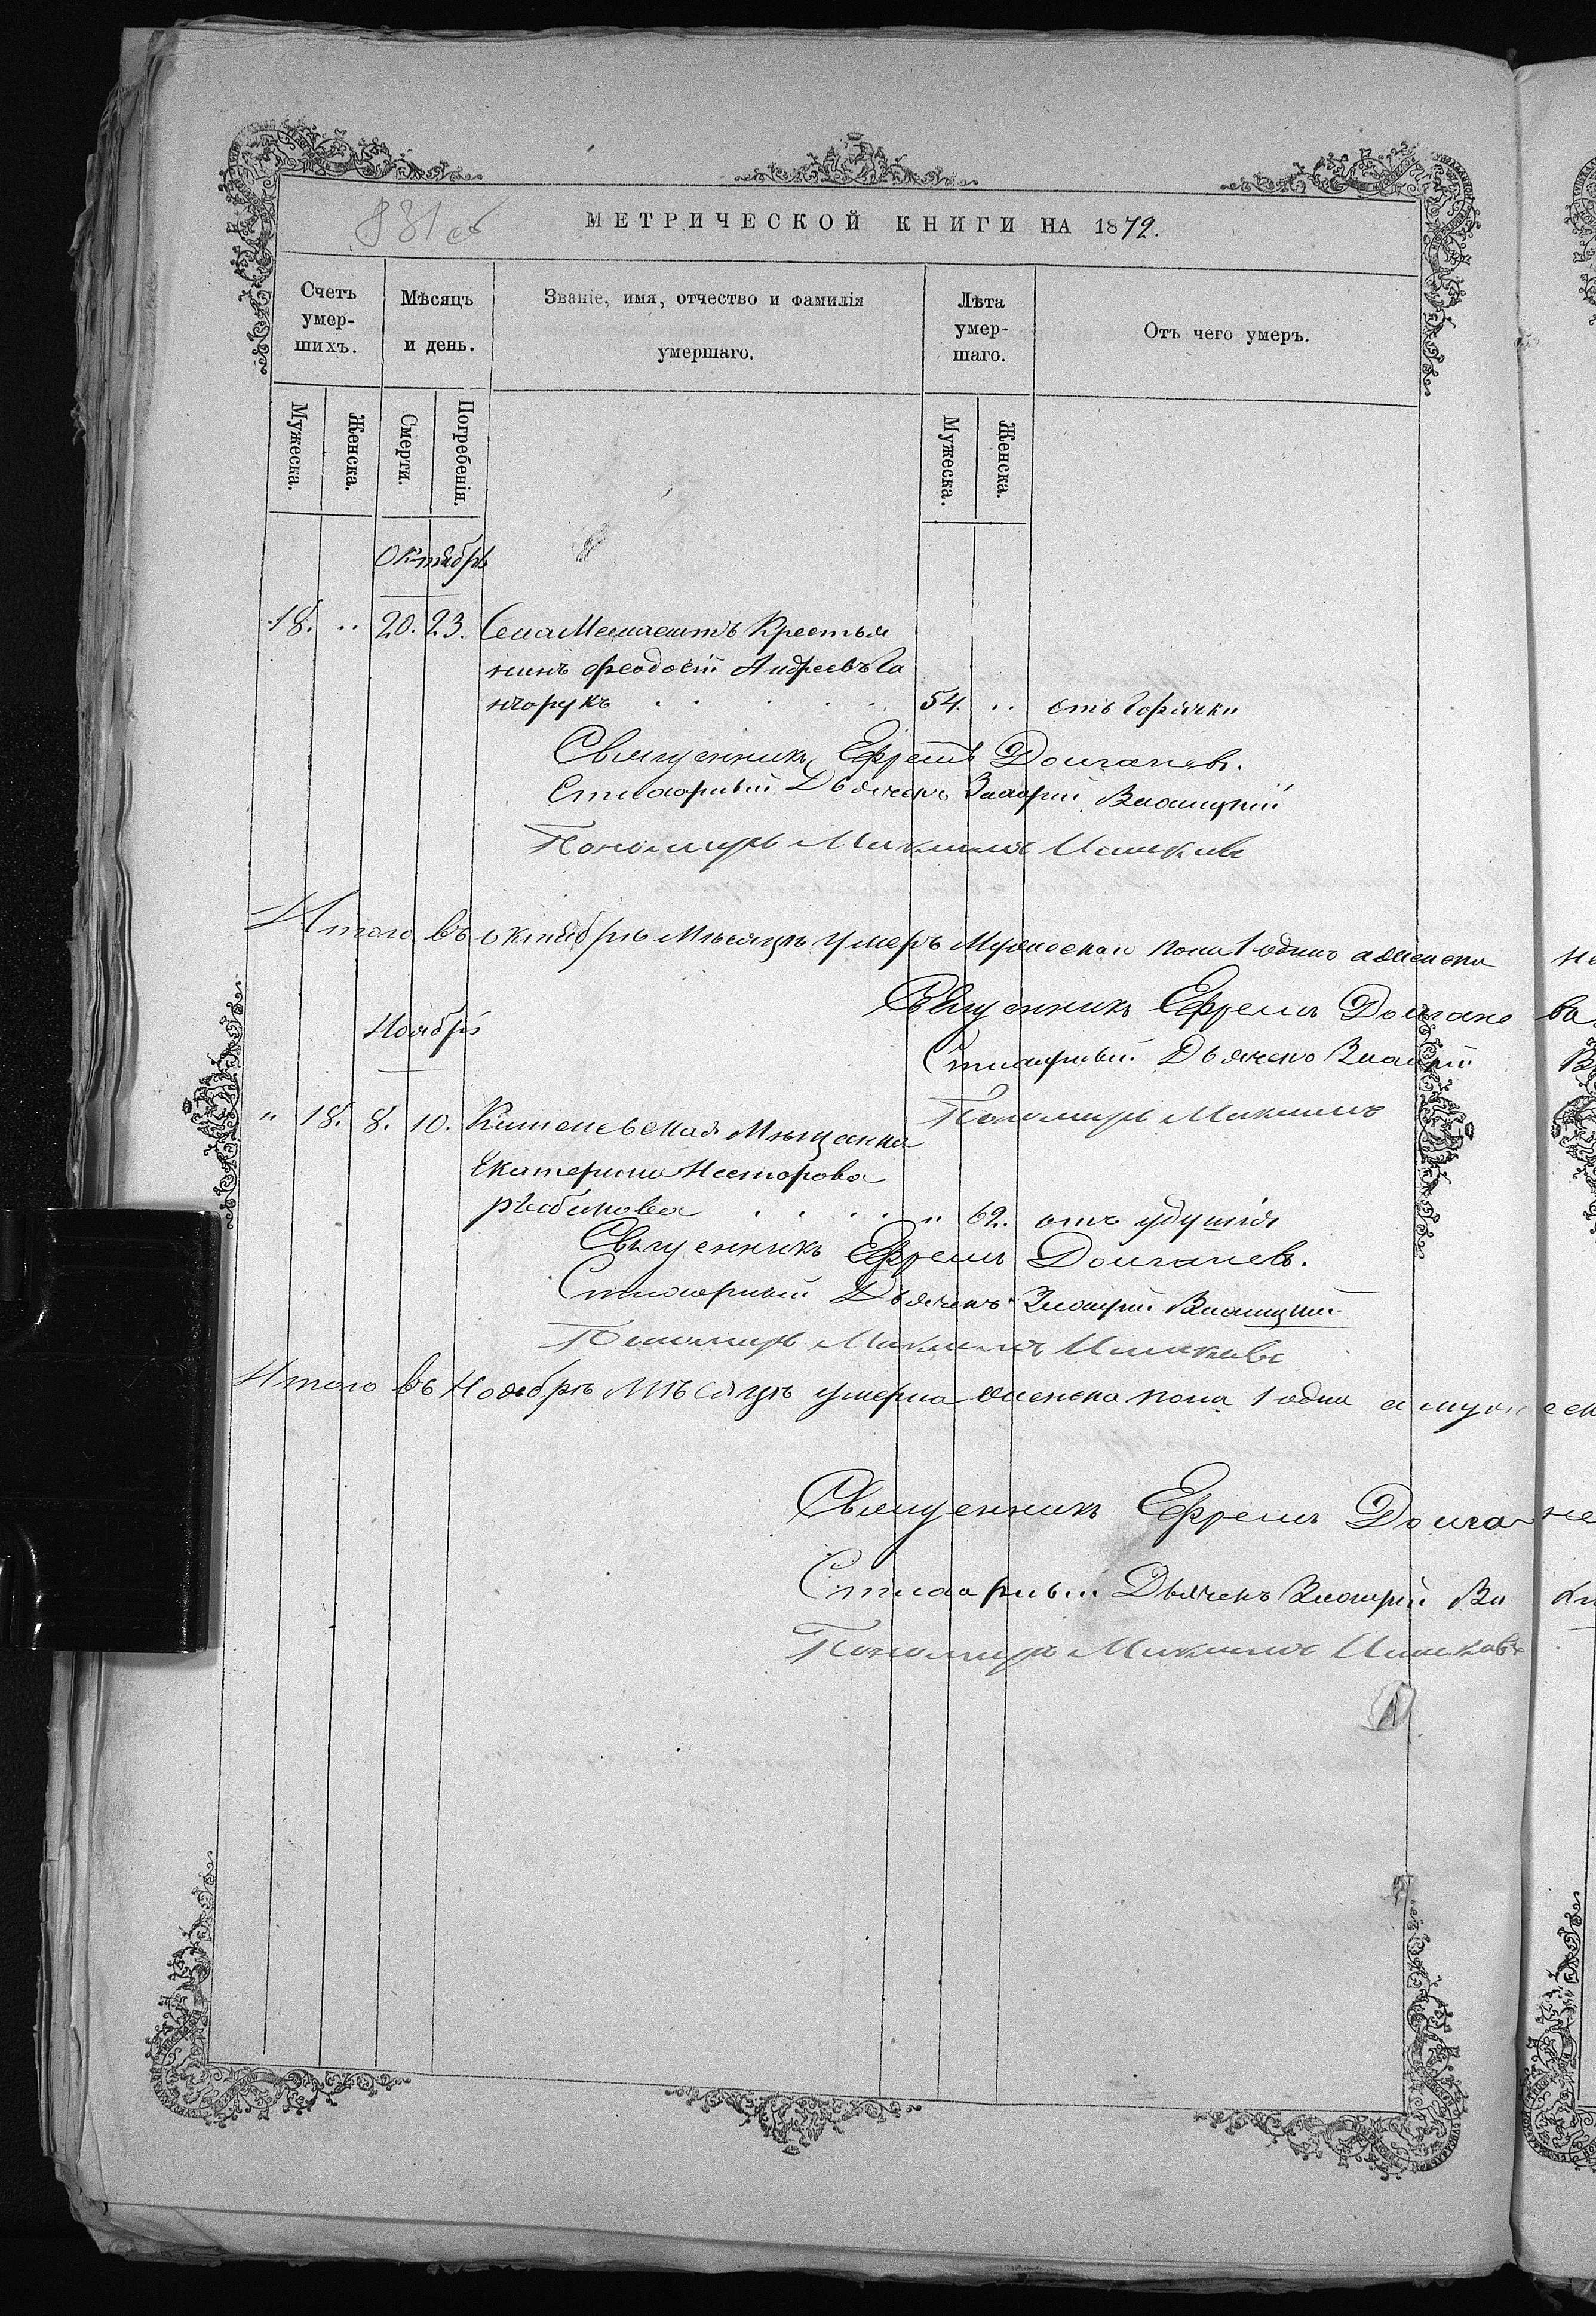 831 об
МЕТРИЧЕСКОЙ КНИГИ НА 1872.
Счетъ умер- шихъ.
Мѣсяцъ и день.
Званіе, имя, отчество и фамилія умершаго.
Лѣта умер- шаго.
Отъ чего умеръ.
Мужеска.
Женска.
Смерти.
Погребенія.
Мужеска.
Женска.
Октябрь
18. „ 20. 23. Села Крестья
нинъ Феодосій Андреевъ Га
нчорукъ . . . . . 54. „ отъ Горячки
Священникъ Ефремъ Долганевъ.
Стихарный Дьячекъ
Пономарь Максимъ
Итого въ октябрѣ Мѣсяцѣ умеръ Мужескаго пола 1 одинъ а женска
Священникъ Ефремъ Долгане
Ноябрь
Стихарный Дьячекъ
Пономарь Максимъ
„ 18. 8. 10. Кишеневская Мѣщанка
Екатерина Несторова
Рѣабикова . . . . „ 62. отъ удушія
Священникъ Ефремъ Долганевъ.
Стихарный Дьячекъ
Пономарь Максимъ
Итого въ Ноябрѣ Мѣсяцѣ умерла женска пола 1 одна а мужеск
Священникъ Ефремъ Долгане
Стихарный Дьячекъ
Пономарь Максимъ